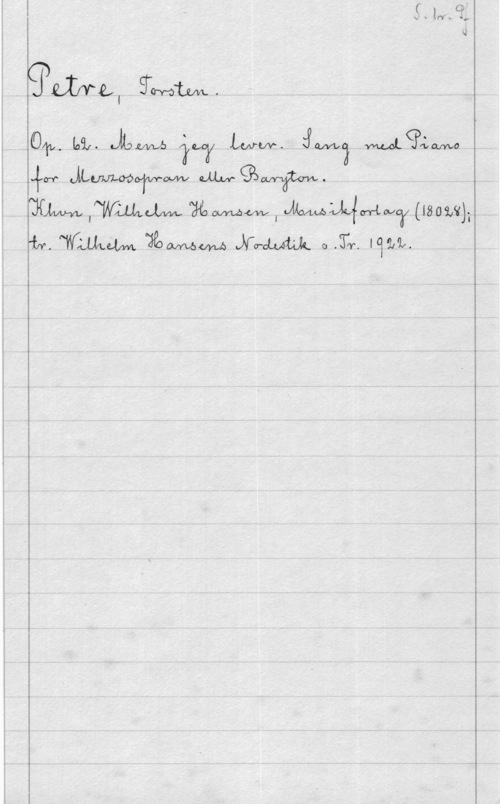 S. tr. Pf
Petre, Torsten.
Op. 62. Mens jeg lever. Sang med Piano
for Mezzosopran eller Baryton.
Khvn, Wilhelm Hansen, Musikforlag (18028);
tr. Wilhelm Hansens Nodestik o. Tr. 1922.